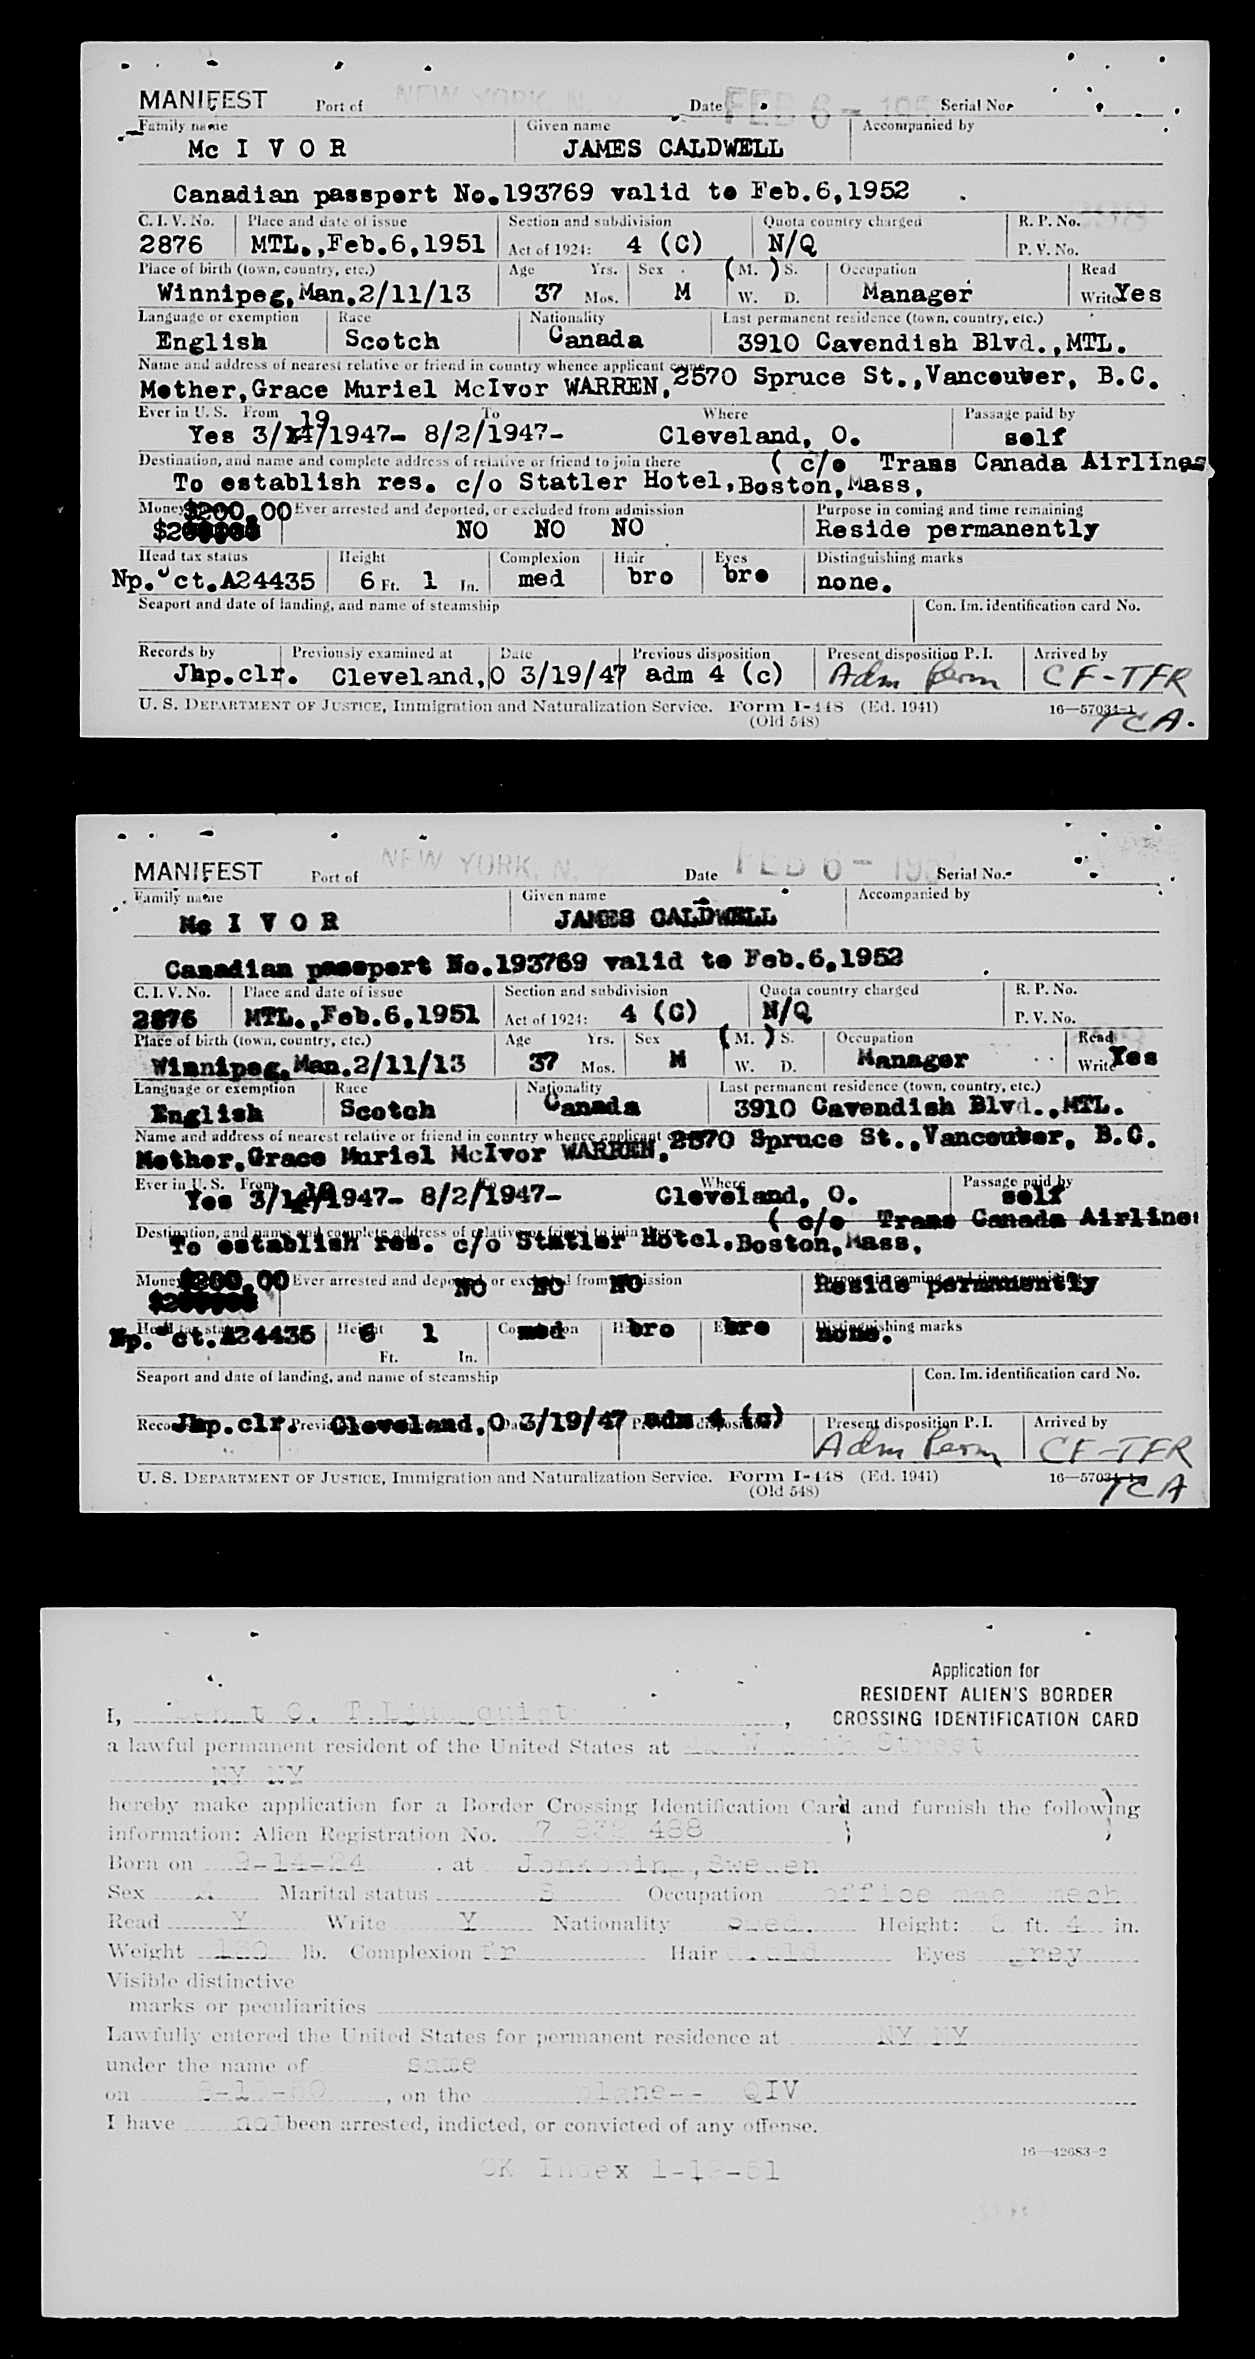 MANIFEST Port of NEW YORK, N. Date FEB 6 - 195 Serial No.
Family name Given name Accompanied by
Mc I V O R JAMES CALDWELL
Canadian passport No.193769 valid to Feb.6,1952
C. I. V. No. Place and date of issue Section and subdivision Quota country charged R. P. No.
2876 MTL.,Feb.6,1951 Act of 1924: 4 (C) N/Q P. V. No.
Place of birth (town, country, etc.) Age Yrs. Sex (M.) S. Occupation Read
Winnipeg,Man.2/11/13 37 Mos. M W. D. Manager Write Yes
Language or exemption Race Nationality Last permanent residence (town, country, etc.)
English Scotch Canada 3910 Cavendish Blvd.,MTL.
Name and address of nearest relative or friend in country whence applicant came
Mother,Grace Muriel McIvor WARREN, 2570 Spruce St.,Vancouver, B.C.
Ever in U. S. From To Where Passage paid by
Yes 3/19/1947- 8/2/1947- Cleveland, O. self
Destination, and name and complete address of relative or friend to join there ( c/o Trans Canada Airlines
To establish res. c/o Statler Hotel,Boston,Mass,
Money $200.00 Ever arrested and deported, or excluded from admission Purpose in coming and time remaining
NO NO NO Reside permanently
Head tax status Height Complexion Hair Eyes Distinguishing marks
Np. ct.A24435 6 Ft. 1 In. med bro bro none.
Seaport and date of landing, and name of steamship Con. Im. identification card No.
Records by Previously examined at Date Previous disposition Present disposition P. I. Arrived by
Jhp.clr. Cleveland,O 3/19/47 adm 4 (c) Adm Perm CF-TFR
U. S. DEPARTMENT OF JUSTICE, Immigration and Naturalization Service. Form I-448 (Ed. 1941) 16—57034-1
(Old 548) TCA.
MANIFEST Port of NEW YORK, N. Date FEB 6 - 195 Serial No.
Family name Given name Accompanied by
Mc I V O R JAMES CALDWELL
Canadian passport No.193769 valid to Feb.6,1952
C. I. V. No. Place and date of issue Section and subdivision Quota country charged R. P. No.
2876 MTL.,Feb.6,1951 Act of 1924: 4 (C) N/Q P. V. No.
Place of birth (town, country, etc.) Age Yrs. Sex (M.) S. Occupation Read
Winnipeg,Man.2/11/13 37 Mos. M W. D. Manager Write Yes
Language or exemption Race Nationality Last permanent residence (town, country, etc.)
English Scotch Canada 3910 Cavendish Blvd.,MTL.
Name and address of nearest relative or friend in country whence applicant
Mother,Grace Muriel McIvor WARREN, 2570 Spruce St.,Vancouver, B.C.
Ever in U. S. From Where Passage paid by
Yes 3/19/1947- 8/2/1947- Cleveland, O. self
( c/o Trans Canada Airlines
Destination, and name and complete address of relative or friend to join there
To establish res. c/o Statler Hotel,Boston,Mass,
Money $200.00 Ever arrested and deported or excluded from admission Purpose in coming and time remaining
NO NO NO Reside permanently
Head tax status Height Complexion Hair Eyes Distinguishing marks
Np. ct.A24435 6 1 med bro bro none.
Ft. In.
Seaport and date of landing, and name of steamship Con. Im. identification card No.
Jhp.clr. Cleveland,O 3/19/47 adm 4 (c) Present disposition P. I. Arrived by
Adm Perm CF-TFR
U. S. DEPARTMENT OF JUSTICE, Immigration and Naturalization Service. Form I-448 (Ed. 1941) 16—57034-1
(Old 548) TCA
Application for
RESIDENT ALIEN'S BORDER
CROSSING IDENTIFICATION CARD
I,
a lawful permanent resident of the United States at Street
NY NY
hereby make application for a Border Crossing Identification Card and furnish the following
information: Alien Registration No. 7 488
Born on 9-14-24 at Sweden
Sex Marital status S Occupation office mach mech
Read Y Write Y Nationality Swed. Height: ft. 4 in.
Weight lb. Complexion fr Hair Eyes grey
Visible distinctive
marks or peculiarities
Lawfully entered the United States for permanent residence at NY NY
under the name of same
on , on the plane-- QIV
I have not been arrested, indicted, or convicted of any offense.
16—42683-2
OK Index